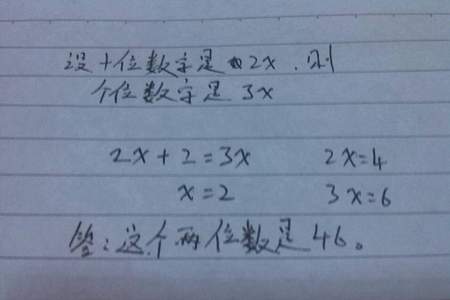 设十位数字是2x,则
个位数字是3x
2x+2=3x 2x=4
x=2 3x=6
答:这个两位数是46。